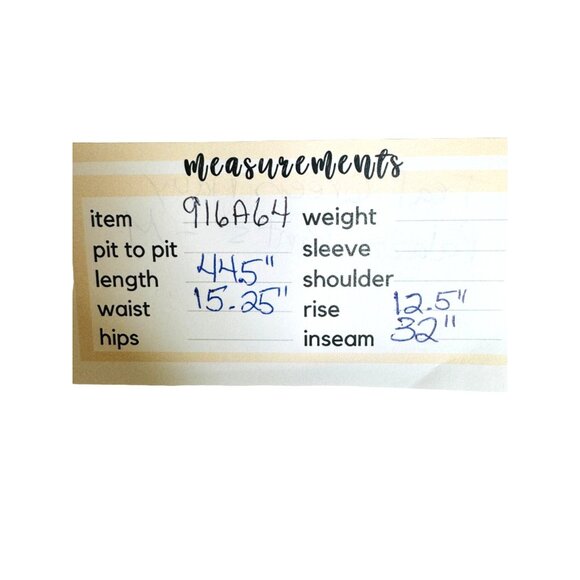 measurements
item 916A64 weight
pit to pit sleeve
length 44.5" shoulder
waist 15.25" rise 12.5"
hips inseam 32"